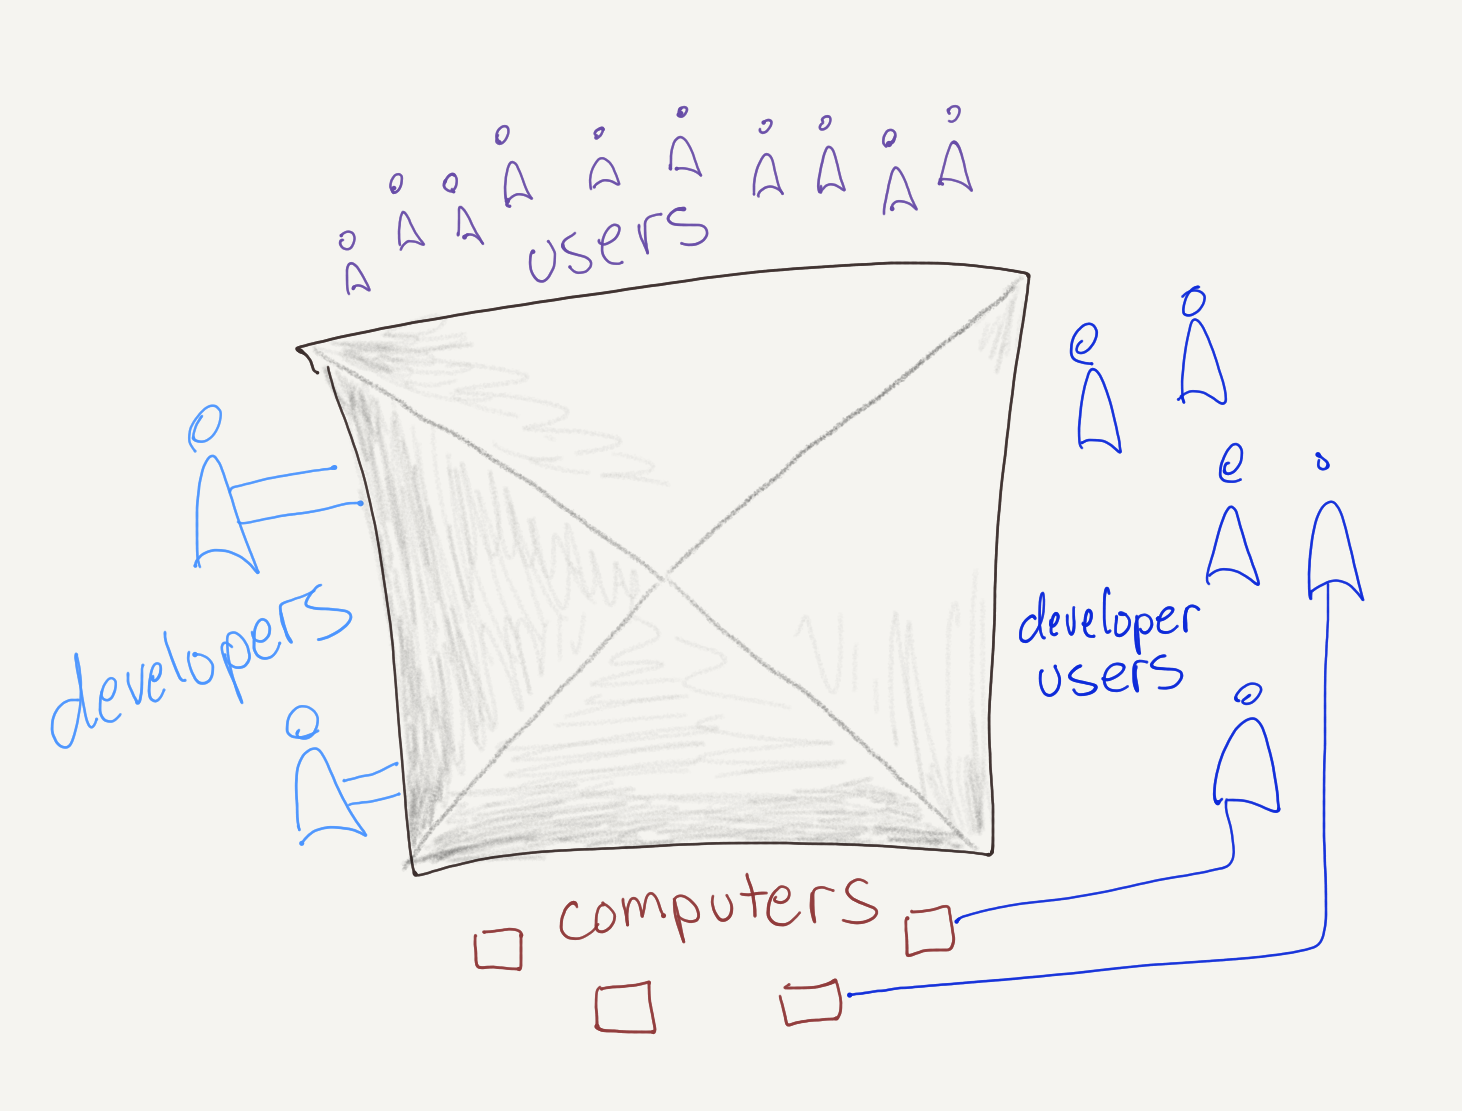 users
developers
developer
users
computers